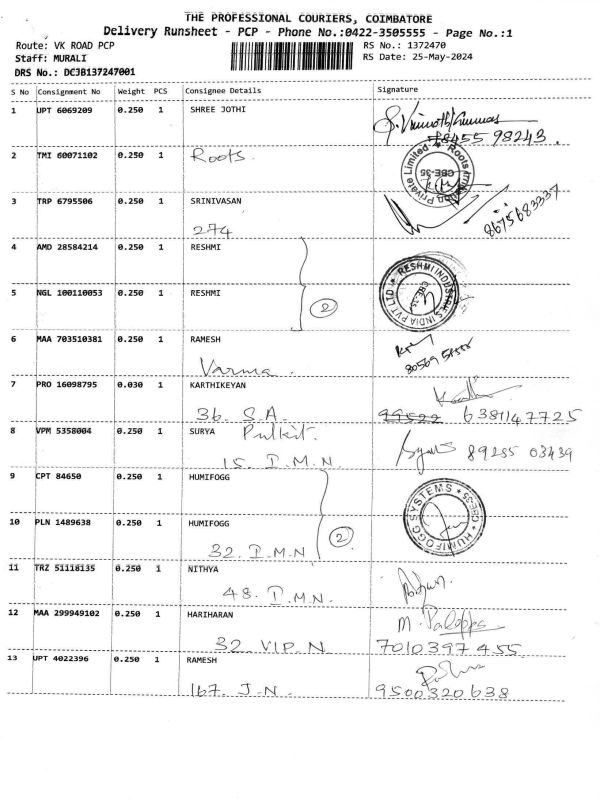 THE PROFESSIONAL COURIERS, COIMBATORE
Delivery Runsheet - PCP - Phone No.:0422-3505555 - Page No.:1
Route: VK ROAD PCP RS No.: 1372470
Staff: MURALI RS Date: 25-May-2024
DRS No.: DCJB137247001
S No Consignment No Weight PCS Consignee Details Signature
1 UPT 6069209 0.250 1 SHREE JOTHI
98243.
2 TMI 60071102 0.250 1 Roots.
Roots Private Limited CBE-35
3 TRP 6795506 0.250 1 SRINIVASAN
274 8675683337
4 AMD 28584214 0.250 1 RESHMI
RESHMI INDUSTRIES INDIA PVT LTD CBE-35
5 NGL 100110053 0.250 1 RESHMI
2
6 MAA 703510381 0.250 1 RAMESH
Varma. 80569
7 PRO 16098795 0.030 1 KARTHIKEYAN
36. S.A. 99522 6381147725
8 VPM 5358004 0.250 1 SURYA Pulkit.
15. I.M.N. 89255 03439
9 CPT 84650 0.250 1 HUMIFOGG
HUMIFOGG SYSTEMS CBE-35
10 PLN 1489638 0.250 1 HUMIFOGG
32. I.M.N 2
11 TRZ 51118135 0.250 1 NITHYA
48. I.M.N.
12 MAA 299949102 0.250 1 HARIHARAN M.
32. VIP. N 7010397455
13 UPT 4022396 0.250 1 RAMESH
167. J.N. 9500320638